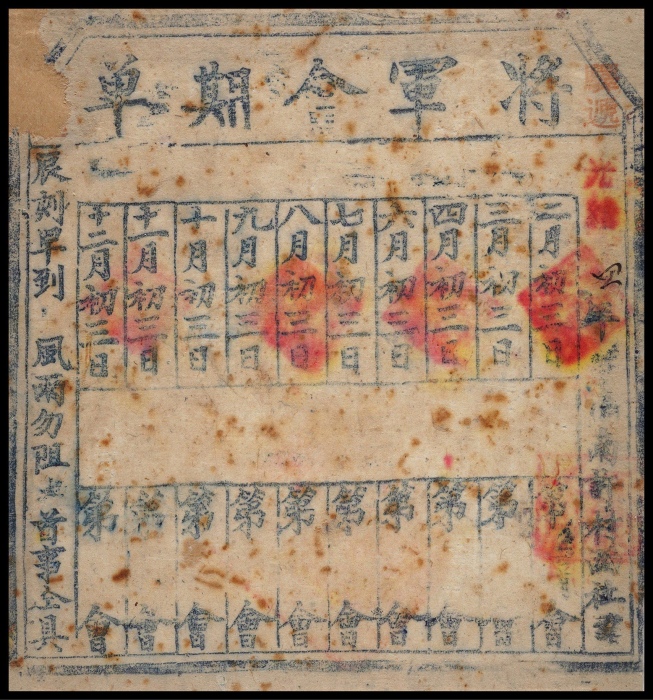 將軍會期单
光緒
年
許村
社
二月初三日
三月初三日
四月初三日
六月初三日
七月初三日
八月初三日
九月初三日
十月初三日
十一月初三日
十二月初三日
第 會
第 會
第 會
第 會
第 會
第 會
第 會
第 會
第 會
第 會
辰刻早到 風雨勿阻 首事仝具